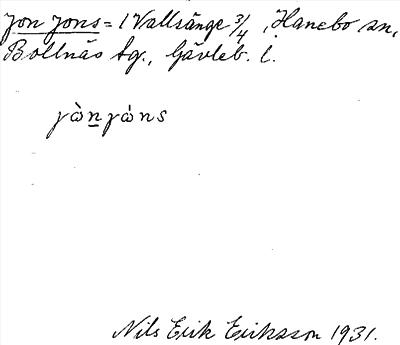 Jon Jons = 1 Vallsänge 3/4, Hanebo sn,
Bollnäs tg., Gävleb. l.
jὼn jώns
Nils Erik Eriksson 1931.